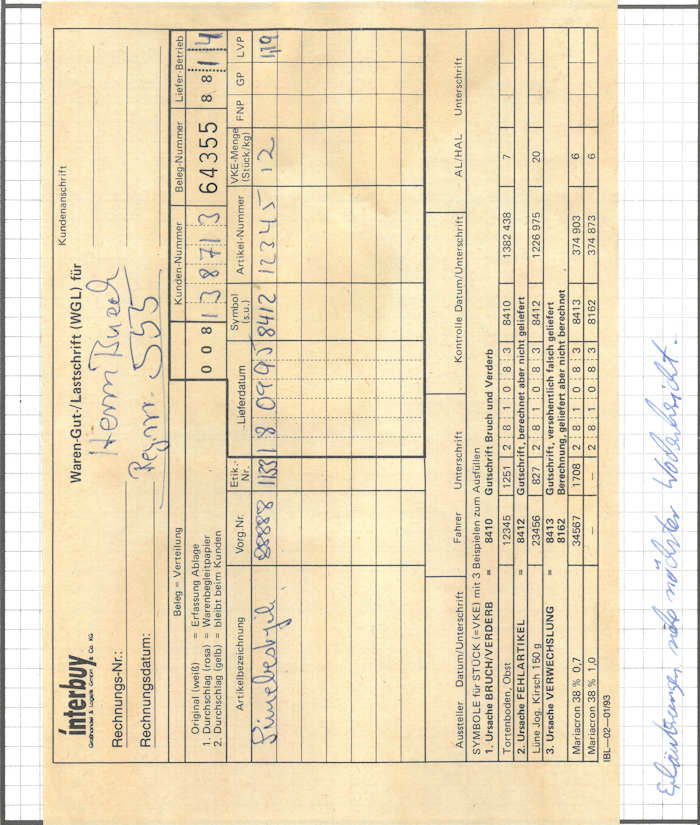 interbuy
Großhandel & Logistik GmbH & Co. KG
Waren-Gut-/Lastschrift (WGL) für
Kundenanschrift
Rechnungs-Nr.:
Herrn
Rechnungsdatum:
Reg.nr. 555
Beleg = Verteilung
Kunden-Nummer
Beleg-Nummer
Liefer-Betrieb
Original (weiß) = Erfassung Ablage
1. Durchschlag (rosa) = Warenbegleitpapier
2. Durchschlag (gelb) = bleibt beim Kunden
0 0 8 1 3 8 7 1 3
64355
8 8 1 4
Artikelbezeichnung
Vorg.Nr.
Etik.-Nr.
Lieferdatum
Symbol (s.u.)
Artikel-Nummer
VKE-Menge (Stück/kg)
FNP
GP
LVP
88888 1133 18 09 95 8412 12345 12 1,19
Aussteller Datum/Unterschrift
Fahrer Unterschrift
Kontrolle Datum/Unterschrift
AL/HAL Unterschrift
SYMBOLE für STÜCK (=VKE) mit 3 Beispielen zum Ausfüllen
1. Ursache BRUCH/VERDERB = 8410 Gutschrift Bruch und Verderb
Tortenboden, Obst 12345 1251 2 8 1 0 8 3 8410 1382 438 7
2. Ursache FEHLARTIKEL = 8412 Gutschrift, berechnet aber nicht geliefert
Lüne Jog. Kirsch 150 g 23456 827 2 8 1 0 8 3 8412 1226 975 20
3. Ursache VERWECHSLUNG = 8413 Gutschrift, versehentlich falsch geliefert
8162 Berechnung, geliefert aber nicht berechnet
Mariacron 38 % 0,7 34567 1708 2 8 1 0 8 3 8413 374 903 6
Mariacron 38 % 1,0 — — 2 8 1 0 8 3 8162 374 873 6
IBL—02—01/93
Erläuterungen, siehe nächster Wochenbericht.